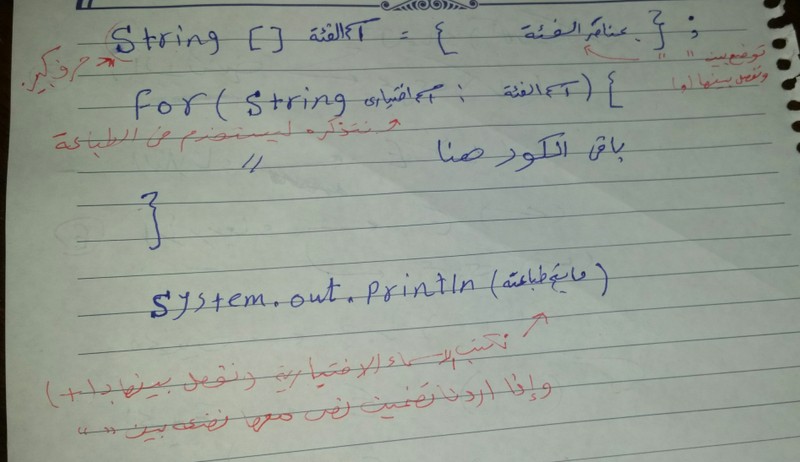 String [] اسم الفئة = { عناصر الفئة } ;
حرف كبير
توضع بين " "
ونفصل بينها
for ( String اسم اختياري : اسم الفئة ) {
نتذكره ليستخدم في الطباعة
// باقي الكود هنا
}
System.out.println ( طباعته )
نكتب الاسماء الاختيارية ونفصل بينها بـ ( + )
وإذا اردنا تضمين نص معها نضعه بين " "